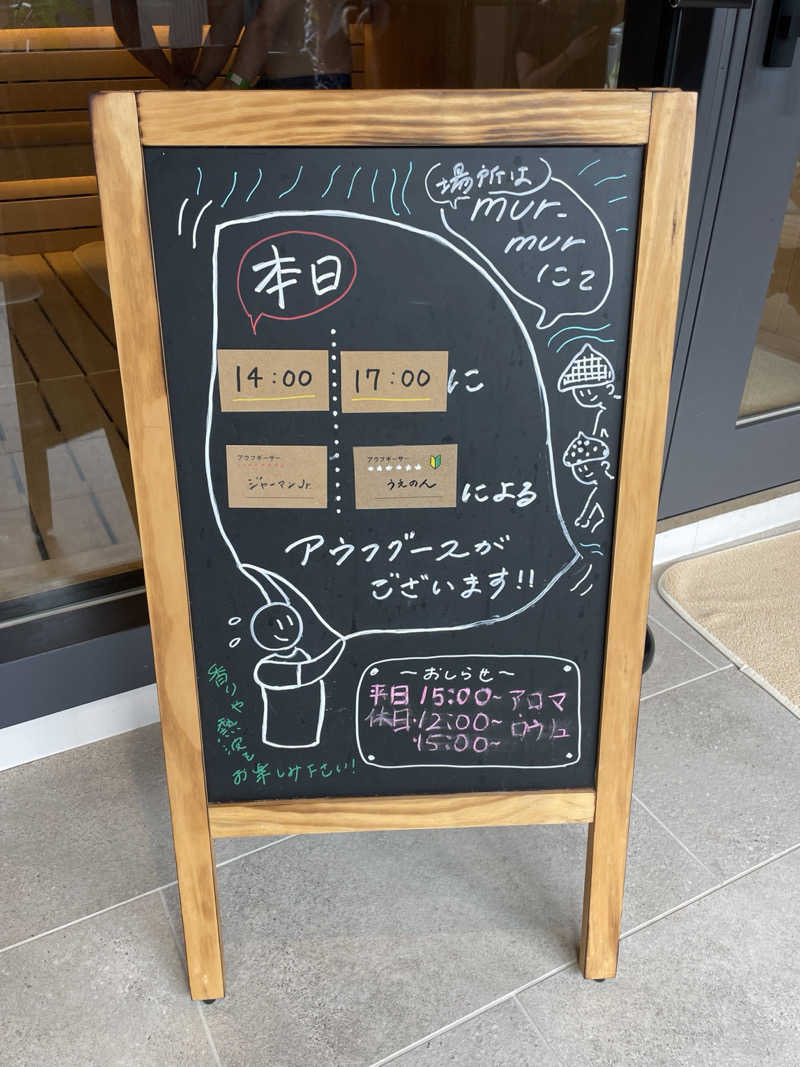 場所は
mur-
mur
にて
本日
14:00
17:00に
アウフギーサー
ジャーマンJr.
アウフギーサー
うえのん
による
アウフグースが
ございます!!
香りや熱波を
お楽しみ下さい!
~おしらせ~
平日 15:00~ アロマ
休日・12:00~ ロウリュ
15:00~